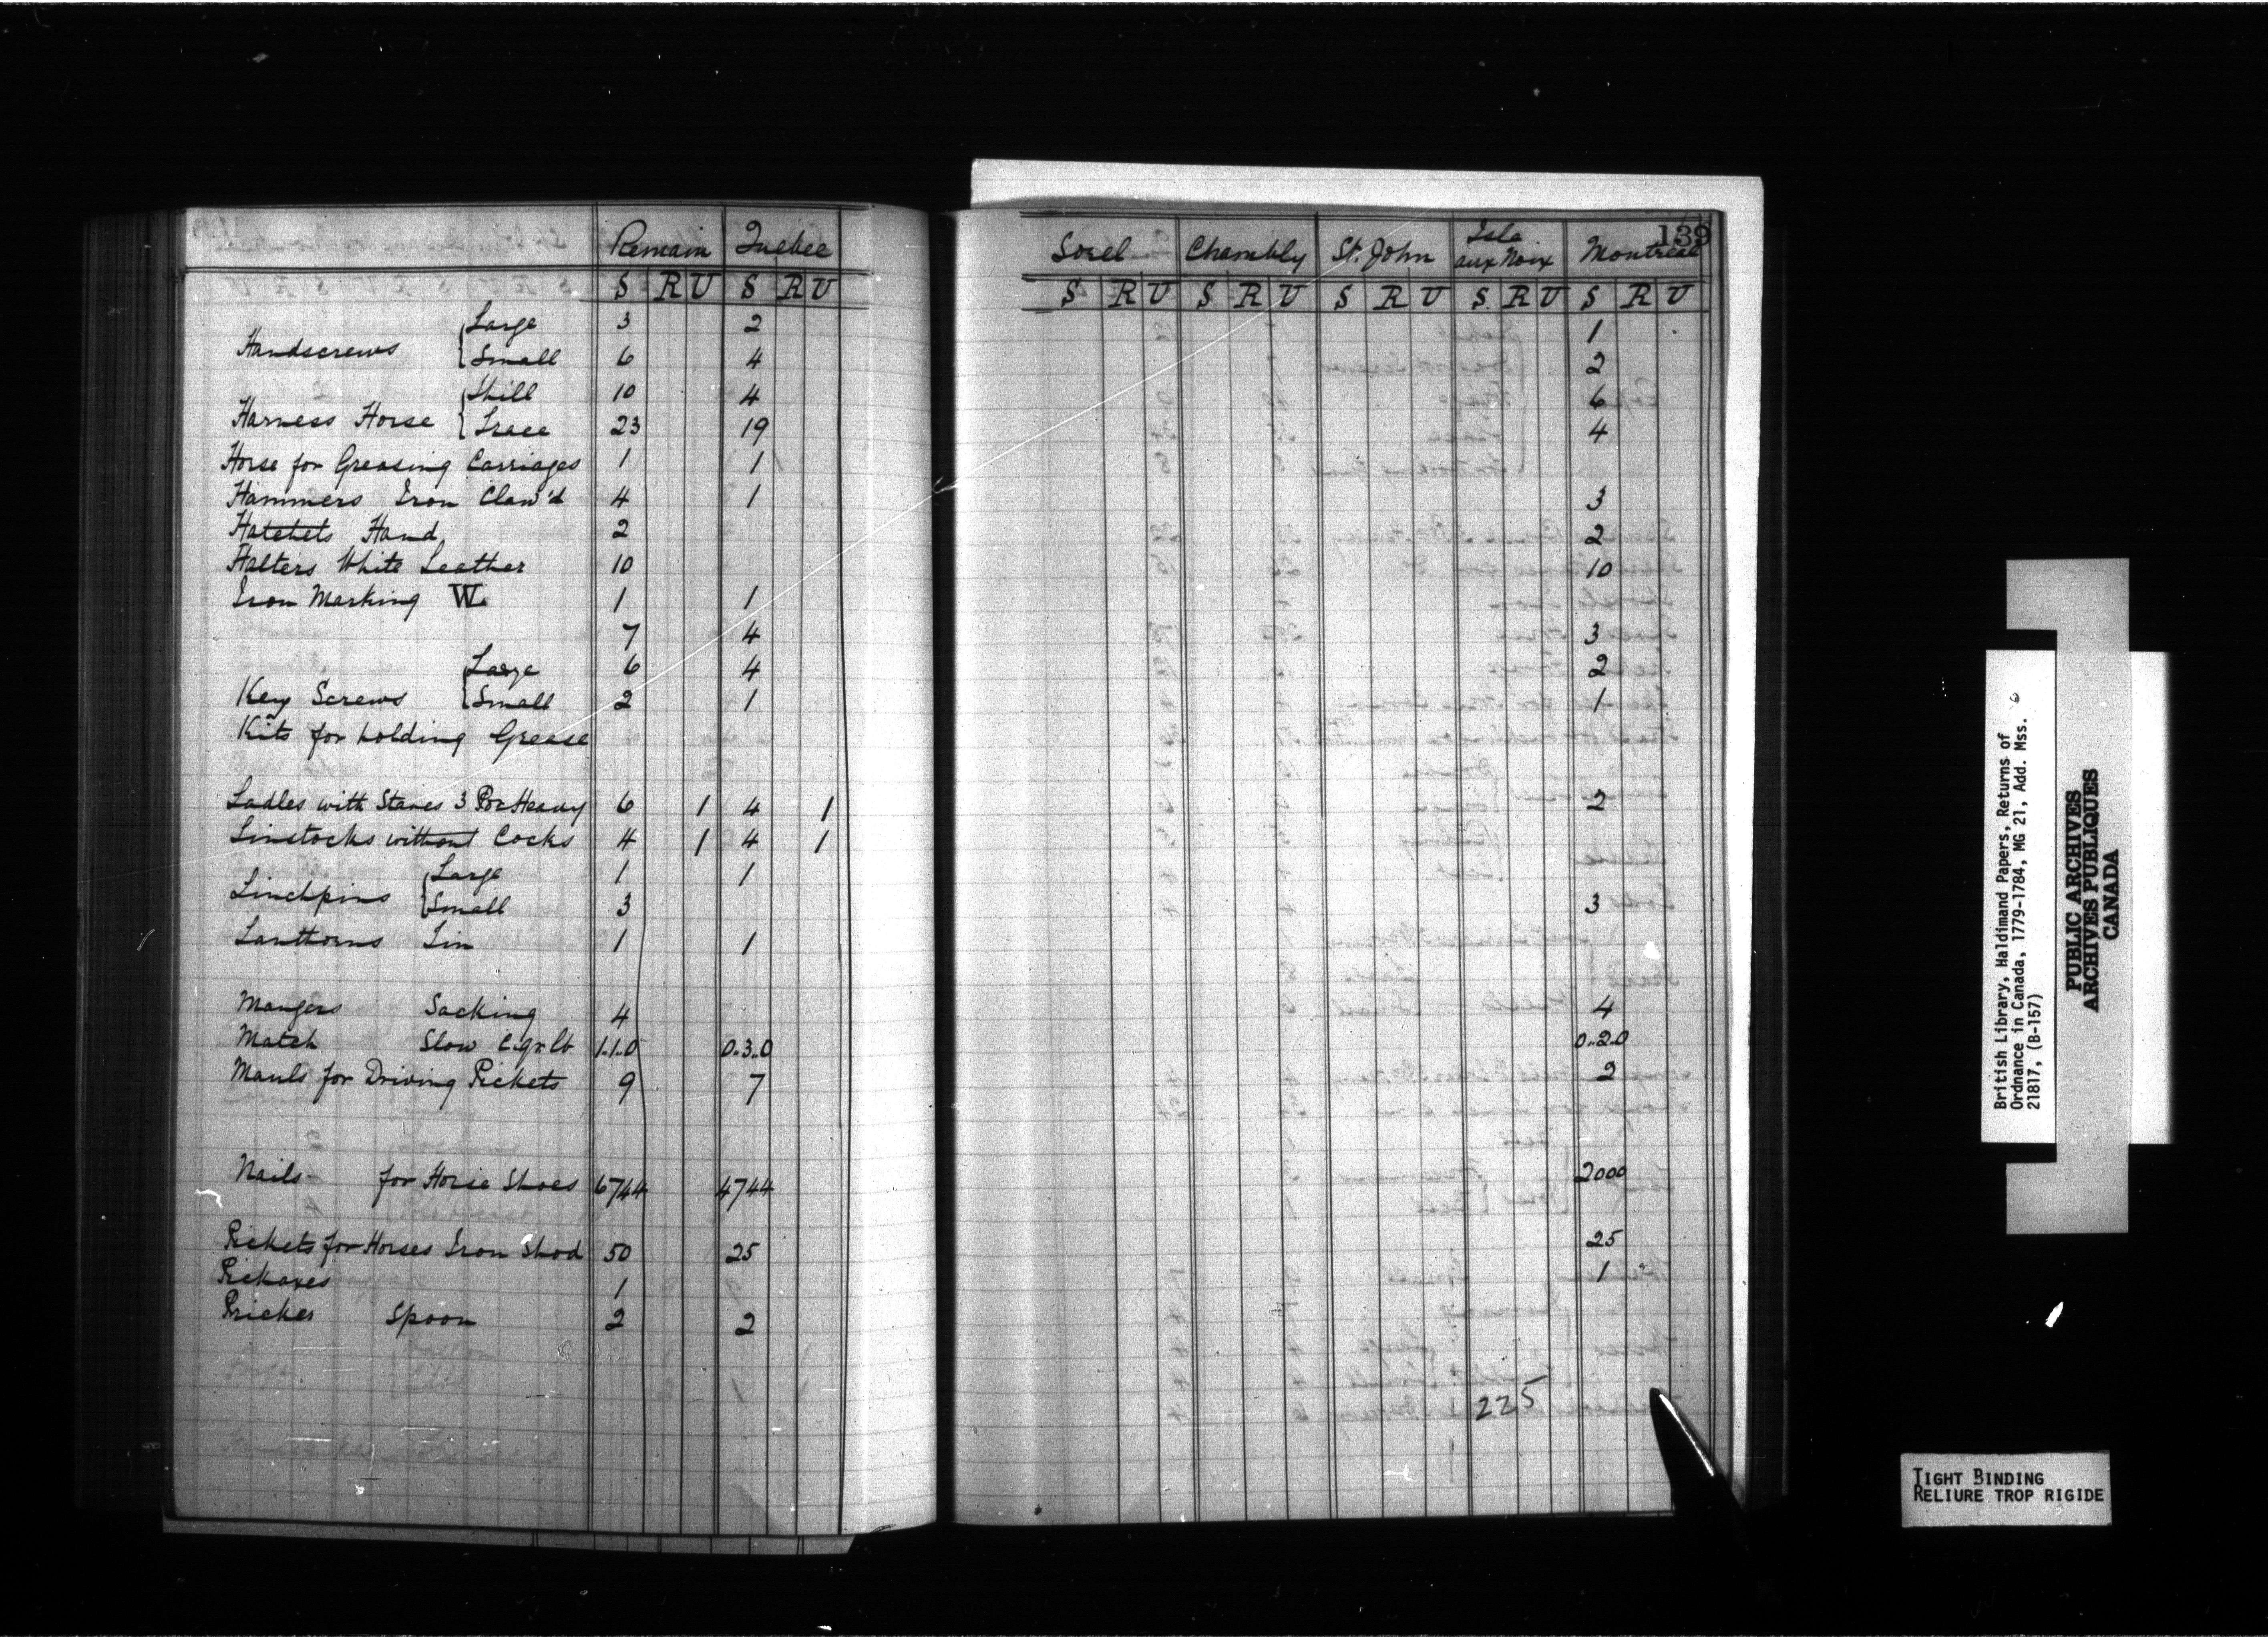 Remain Quebec
S R U S R U
Handscrews { Large 3 2
Small 6 4
Harness Horse { Thill 10 4
Trace 23 19
Horse for Greasing Carriages 1 1
Hammers Iron Claw'd 4 1
Hatchets Hand 2
Halters White Leather 10
Iron Marking W. 1 1
7 4
Key Screws { Large 6 4
Small 2 1
Kits for holding Grease
Ladles with Staves 3 Por Heavy 6 1 4 1
Linstocks without Cocks 4 1 4 1
Linchpins { Large 1 1
Small 3
Lanthorns Tin 1 1
Mangers Sacking 4
Match Slow C.qr.lb 1.1.0 0.3.0
Mauls for Driving Pickets 9 7
Nails for Horse Shoes 6744 4744
Pickets for Horses Iron Shod 50 25
Pickaxes 1
Pricker Spoon 2 2
139
Sorel Chambly St. John Isle aux Noix Montreal
S R U S R U S R U S. R U S R U
1
2
6
4
3
2
10
3
2
1
2
3
4
0..2.0
2
2000
25
1
225
British Library, Haldimand Papers, Returns of
Ordnance in Canada, 1779-1784, MG 21, Add. Mss.
21817, (B-157)
PUBLIC ARCHIVES
ARCHIVES PUBLIQUES
CANADA
TIGHT BINDING
RELIURE TROP RIGIDE